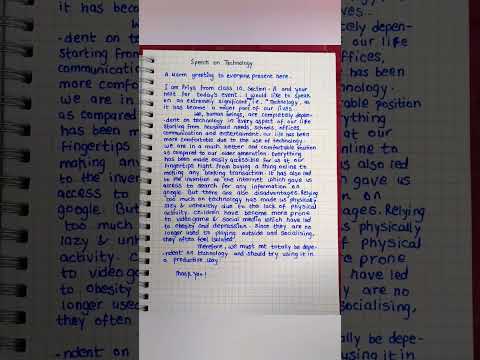 Speech on Technology
A warm greeting to everyone present here.
I am Priya from class 10, Section-A and your
host for today's event. I would like to speak
on an extremely significant, i.e. "Technology, as
it has become a major part of our lives.
We, human beings, are completely depen-
dent on technology in every aspect of our life
starting from household needs, schools, offices,
communication and entertainment, our life has become
more comfortable due to the use of technology.
we are in a much better and comfortable position
as compared to our older generation. Everything
has been made easily accessible for us at our
fingertips right from buying a thing online to
making any banking transaction. It has also led
to the invention of the internet which gave us
access to search for any information on
google. But there are also disadvantages. Relying
too much on technology has made us physically
lazy & unhealthy due to the lack of physical
activity. children have become more prone
to videogame & social media which have led
to obesity and depression. Since they are no
longer used to playing outside and socialising,
they often feel isolated.
Therefore, we must not totally be depe-
-ndent on technology and should try using it in
a productive way.
Thank You!